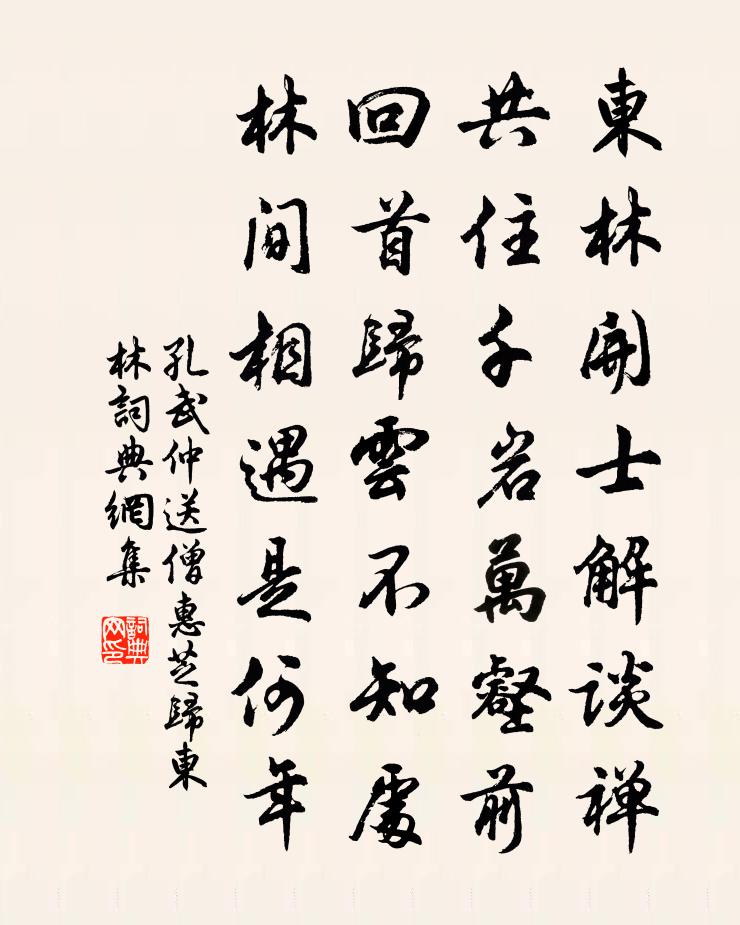 東林開士解談禪
共住千岩萬壑前
回首歸雲不知處
林間相遇是何年
孔武仲送僧惠芝歸東
林詞典網集
詞典網印